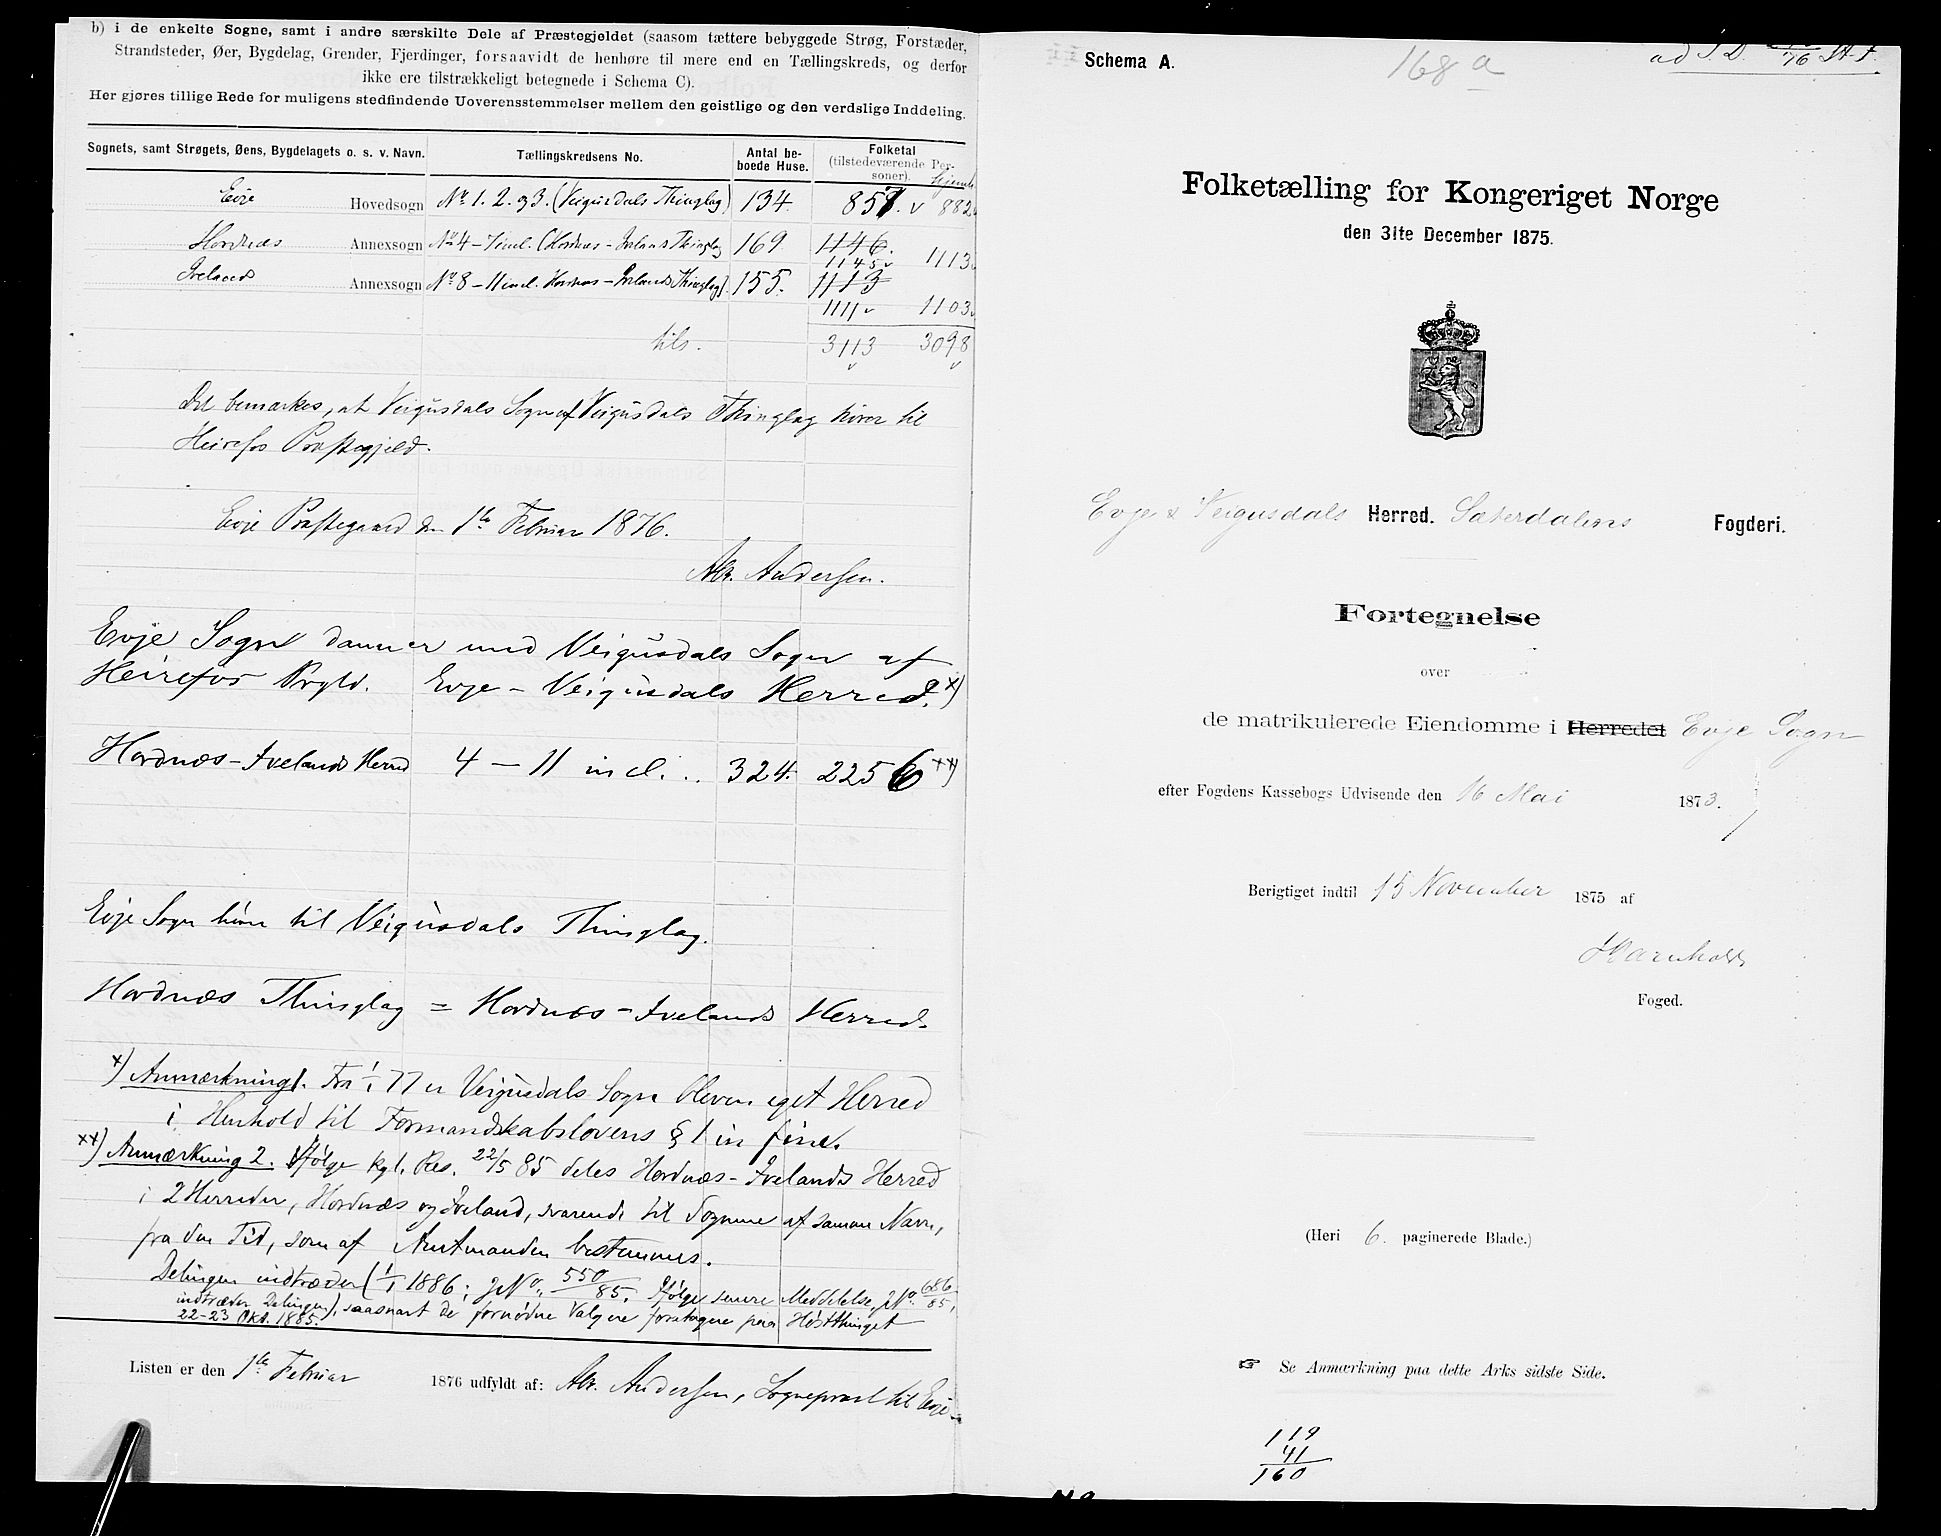 b) i de enkelte Sogne, samt i andre særskilte Dele af Præstegjeldet (saasom tættere bebyggede Strøg, Forstæder,
Strandsteder, Øer, Bygdelag, Grender, Fjerdinger, forsaavidt de henhøre til mere end en Tællingskreds, og derfor
ikke ere tilstrækkeligt betegnede i Schema C).
Her gjøres tillige Rede for muligens stedfindende Uoverensstemmelser mellem den geistlige og den verdslige Inddeling.
Sognets, samt Strøgets, Øens, Bygdelagets o. s. v. Navn. Tællingskredsens No. Antal be- Folketal
boede Huse. (tilstedeværende Per-
soner). hjemh.
Evje Hovedsogn No 1. 2. og 3. (Veigusdals Thinglag) 134. 857. v 882
Hordnæs Annexsogn No 4 – 7 incl. (Hordnæs – Ivelands Thinglag 169 1146.
1145 v 1113
Iveland Annexsogn No 8 – 11 incl. Hordnæs – Ivelands Thinglag). 155. 1113
1111 v 1103
tils. 3113 3098
v v
Det bemærkes, at Veigusdals Sogn af Veigusdals Thinglag hører til
Heirefos Præstegjeld.
Evje Præstegaard den 1ste Februar 1876.
Alr. Andersen.
Evje Sogn danner med Veigusdals Sogn af
Heirefos Prgld. Evje – Veigusdals Herred. x)
Hordnæs – Ivelands Herred 4 – 11 incl. .. 324. 2256 xx)
Evje Sogn hører til Veigusdals Thinglag.
Hordnæs Thinglag = Hordnæs – Ivelands Herred.
x) Anmærkning 1. Fra 1/1 77 er Veigusdals Sogn bleven eget Herred
i Henhold til Formandskabslovens § 1 in fine.
xx) Anmærkning 2. Ifølge kgl. Res. 22/5 85 deles Hordnæs – Ivelands Herred
i 2 Herreder, Hordnæs og Iveland, svarende til Sognene af samme Navn,
fra den Tid, som af Amtmanden bestemmes.
Delingen indtræder (1/1 1886; JNo. 550/85. Ifølge senere Meddelelse, JNo. 686/85,
indtræder Delingen), saasnart de fornødne Valg ere foretagne paa Høstthinget
22–23 Okt. 1885.
Listen er den 1ste Februar 1876 udfyldt af: Alr. Andersen, Sognepræst til Evje
Schema A. 168 a ad J. D. /76 St. F.
Folketælling for Kongeriget Norge
den 31te December 1875.
Evje & Veigusdals Herred. Sæterdalens Fogderi.
Fortegnelse
over
de matrikulerede Eiendomme i Herredet Evje Sogn
efter Fogdens Kassebogs Udvisende den 16 Mai 1873.
Berigtiget indtil 15 November 1875 af
Foged.
(Heri 6. paginerede Blade.)
☞ Se Anmærkning paa dette Arks sidste Side.
119
41
160